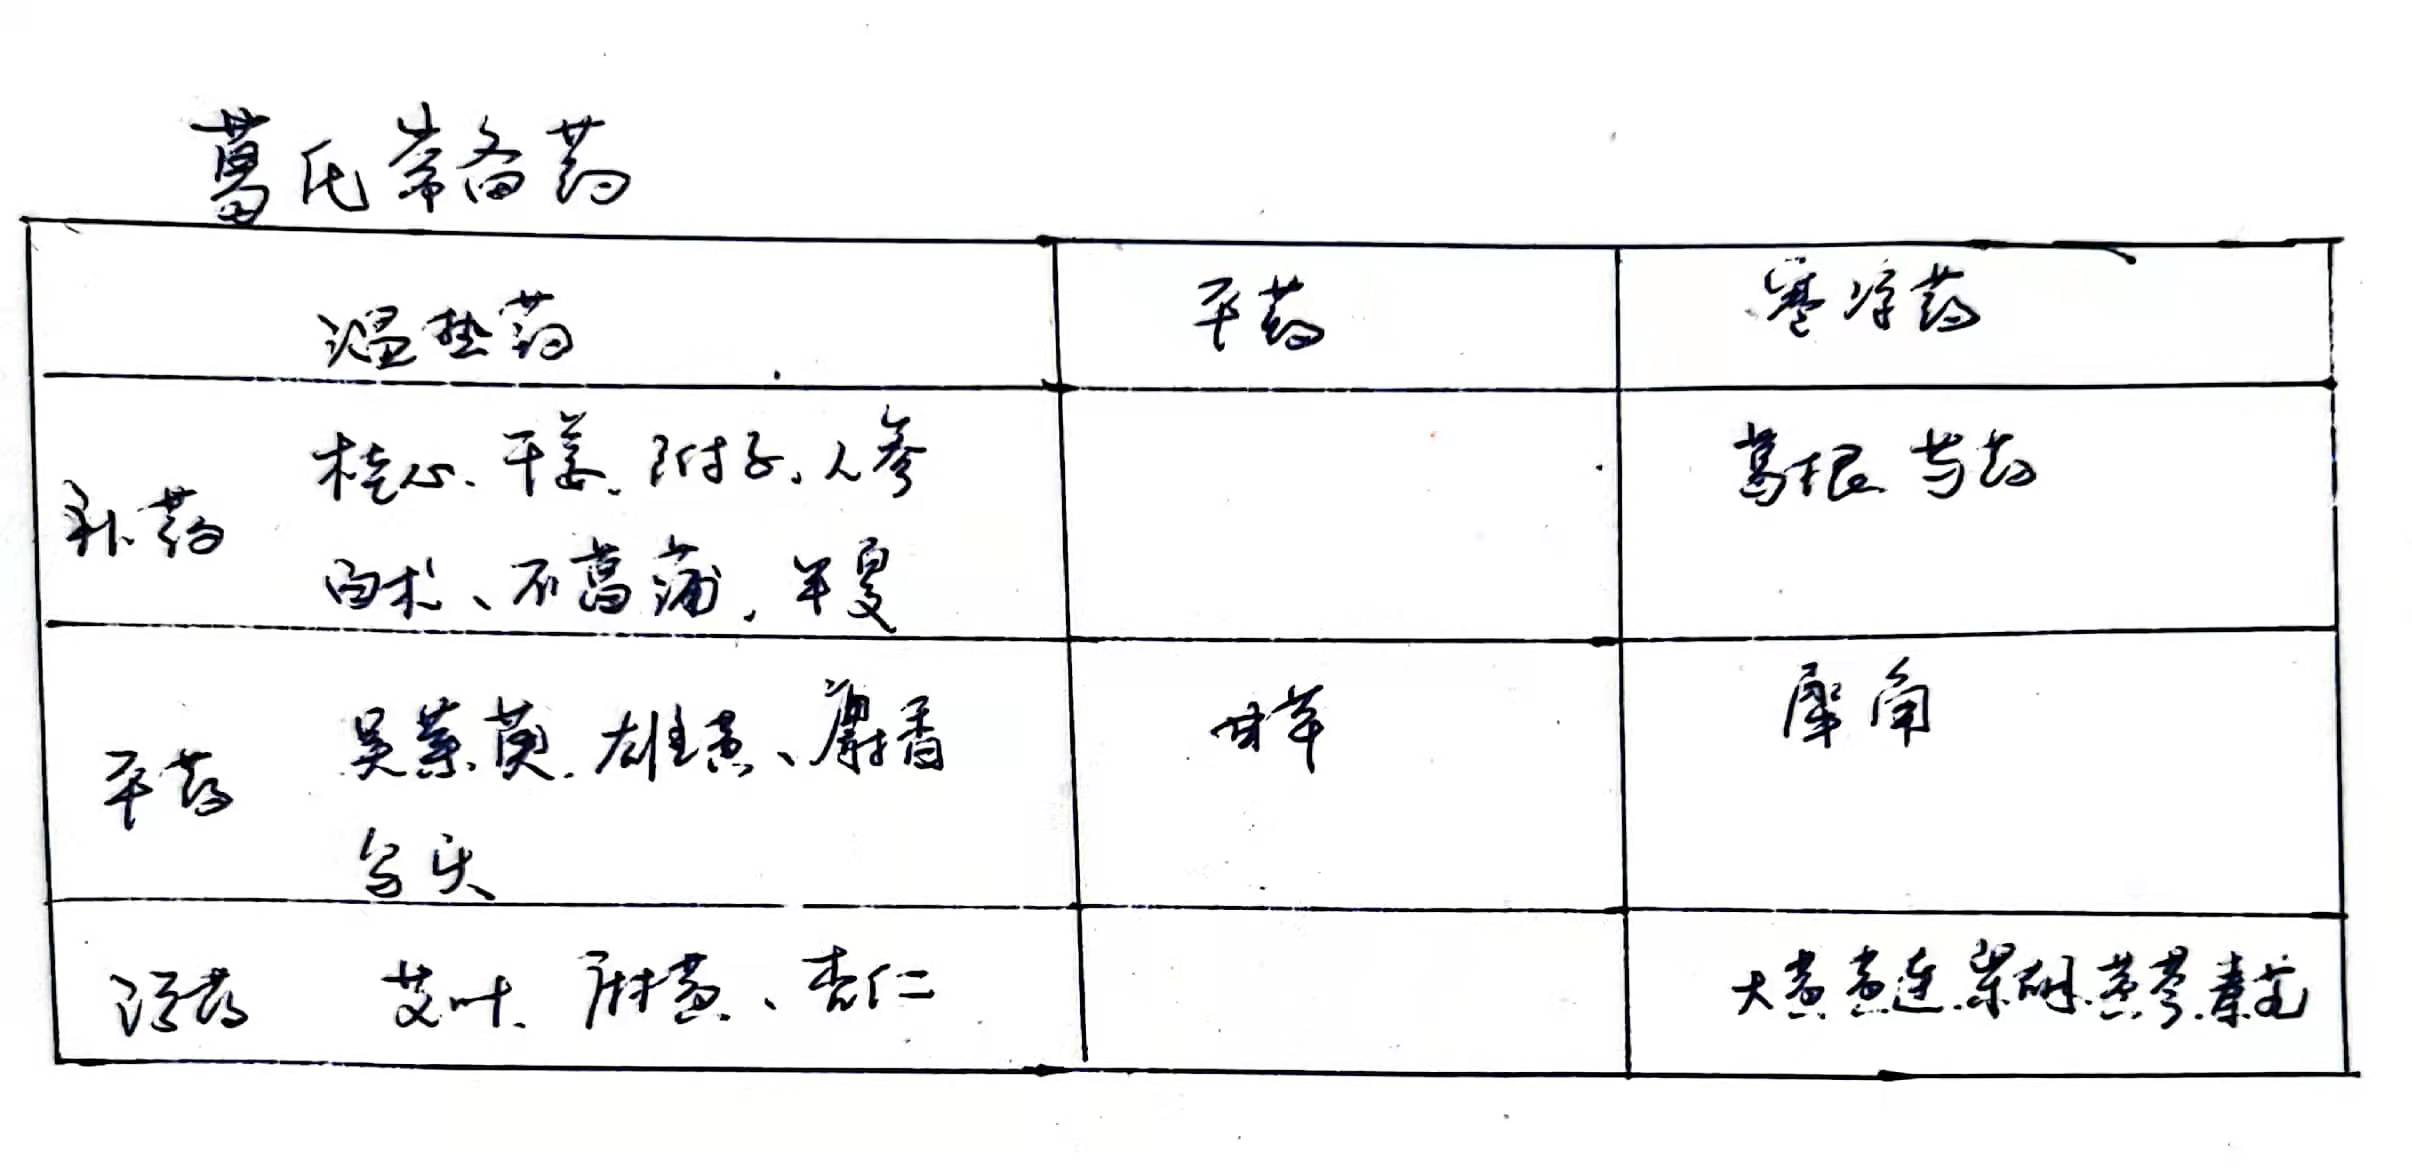 葛氏常备药
温热药 平药 寒凉药
补药 桂心、干姜、附子、人参 葛根 芍药
白术、石菖蒲、半夏
平药 吴茱萸、雄黄、麝香 甘草 犀角
乌头
泻药 艾叶、麻黄、杏仁 大黄.黄连.柴胡.黄芩.秦艽